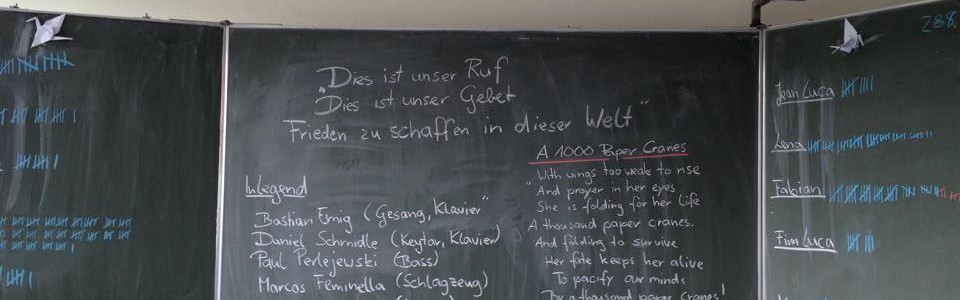 Dies ist unser Ruf
"Dies ist unser Gebet
Frieden zu schaffen in dieser Welt"
InLegend
Bastian Emig (Gesang, Klavier
Daniel Schmidle (Keytar, Klavier)
Paul Perlejewski (Bass)
Marcos Feminella (Schlagzeug)
A 1000 Paper Cranes
With wings too weak to rise
"And prayer in her eyes
She is folding for her life
A thousand paper cranes.
And folding to survive
Her fate keeps her alive
To pacify our minds
By a thousand paper cranes!
288
Jean Luca
Lena
Fabian
Finn Luca